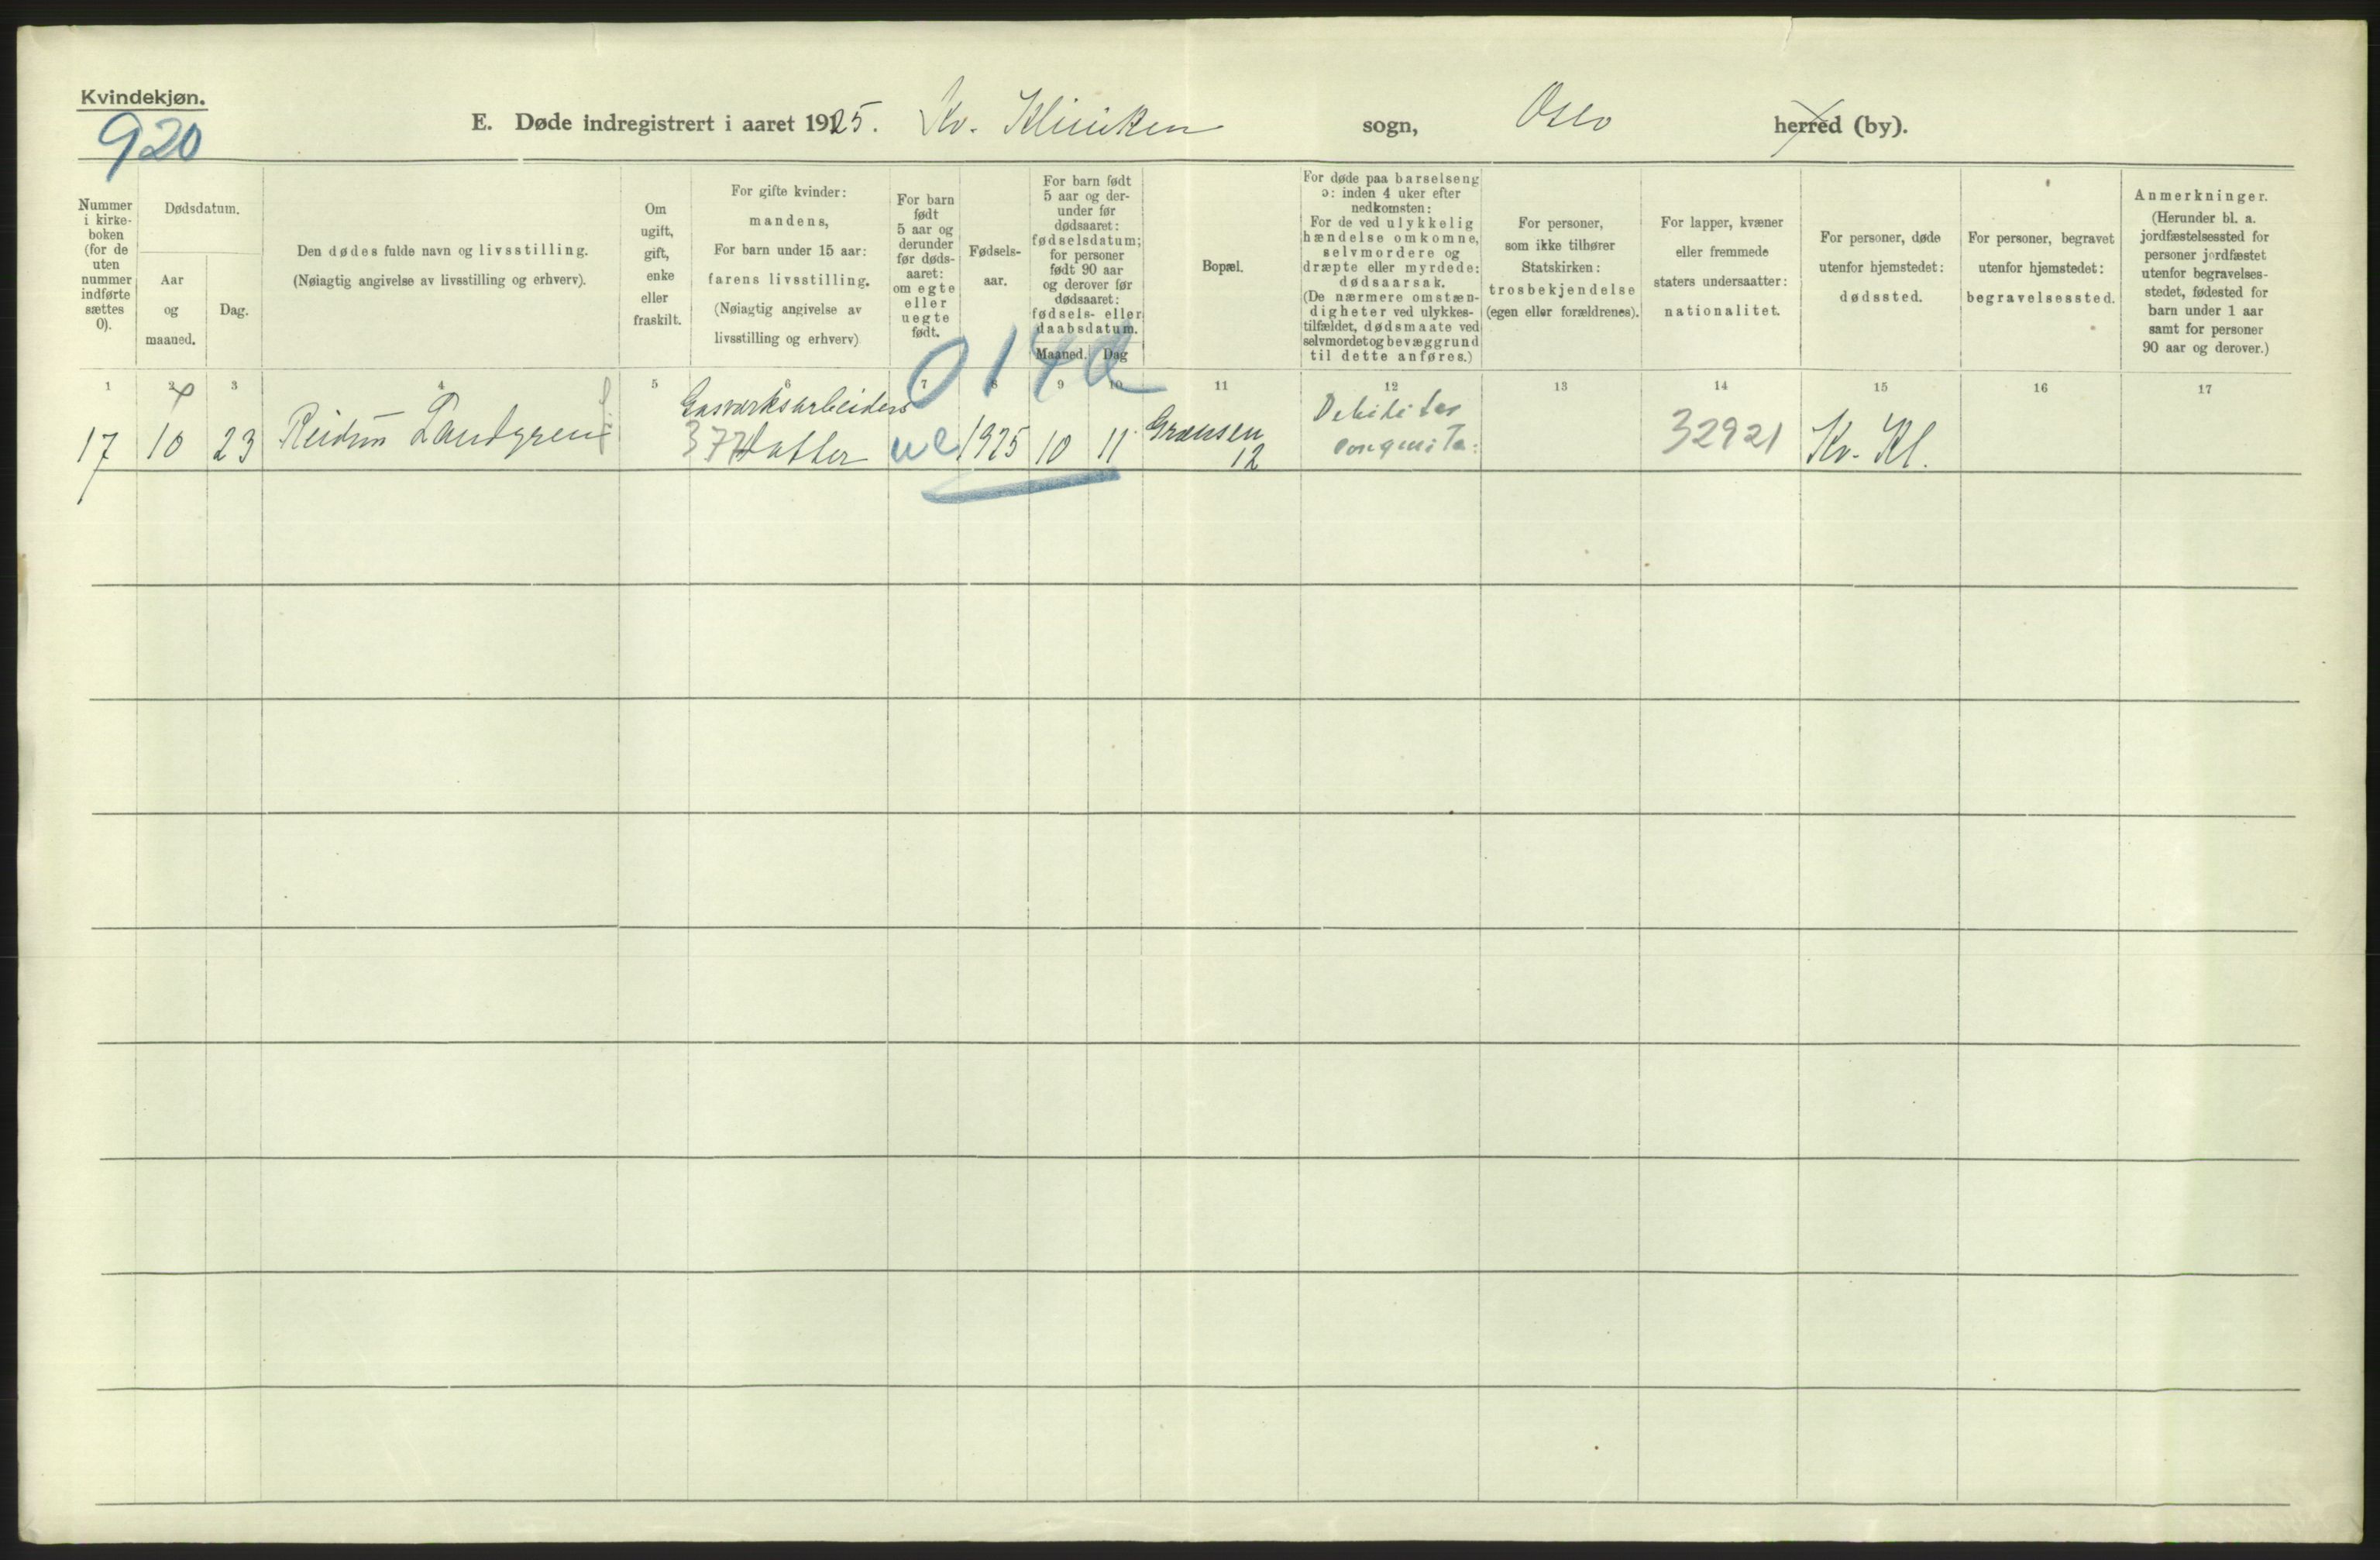 Kvindekjøn.
920
E. Døde indregistrert i aaret 1925. Kv. Kliniken sogn, Oslo herred (by).
Nummer
i kirke-
boken
(for de
uten
nummer
indførte
sættes
0).
Dødsdatum.
Aar
og
maaned.
Dag.
Den dødes fulde navn og livsstilling.
(Nøiagtig angivelse av livsstilling og erhverv).
Om
ugift,
gift,
enke
eller
fraskilt.
For gifte kvinder:
mandens,
For barn under 15 aar:
farens livsstilling.
(Nøiagtig angivelse av
livsstilling og erhverv)
For barn
født
5 aar og
derunder
før døds-
aaret:
om egte
eller
uegte
født.
Fødsels-
aar.
For barn født
5 aar og der-
under før
dødsaaret:
fødselsdatum;
for personer
født 90 aar
og derover før
dødsaaret:
fødsels- eller
daabsdatum.
Maaned. Dag
Bopæl.
For døde paa barselseng
ɔ: inden 4 uker efter
nedkomsten:
For de ved ulykkelig
hændelse omkomne,
selvmordere og
dræpte eller myrdede:
dødsaarsak.
(De nærmere omstæn-
digheter ved ulykkes-
tilfældet, dødsmaate ved
selvmordet og bevæggrund
til dette anføres.)
For personer,
som ikke tilhører
Statskirken:
trosbekjendelse
(egen eller forældrenes).
For lapper, kvæner
eller fremmede
staters undersaatter:
nationalitet.
For personer, døde
utenfor hjemstedet:
dødssted.
For personer, begravet
utenfor hjemstedet:
begravelsessted.
Anmerkninger.
(Herunder bl. a.
jordfæstelsessted for
personer jordfæstet
utenfor begravelses-
stedet, fødested for
barn under 1 aar
samt for personer
90 aar og derover.)
1 2 3 4 5 6 7 8 9 10 11 12 13 14 15 16 17
014d
Gasværksarbeiders
Debilitas
17 10 23 Reidun Landgren 377 datter ue 1925 10 11 Grænsen congenita: 32921 Kv. Kl.
12